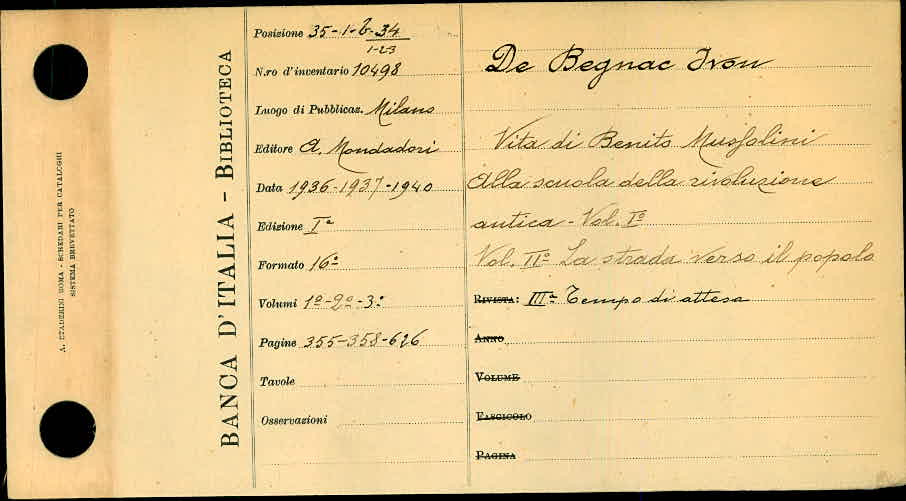 A. STADERINI ROMA - SCHEDARI PER CATALOGHI
SISTEMA BREVETTATO
BANCA D'ITALIA - BIBLIOTECA
Posizione 35-1-6-34
1-23
N.ro d'inventario 10498
Luogo di Pubblicaz. Milano
Editore A. Mondadori
Data 1936-1937-1940
Edizione Iª
Formato 16º
Volumi 1º-2º-3º
Pagine 355-358-626
Tavole
Osservazioni
De Begnac Ivon
Vita di Benito Mussolini
Alla scuola della rivoluzione
antica - Vol. Iº
Vol. IIº La strada verso il popolo
RIVISTA: IIIº Tempo di attesa
ANNO
VOLUME
FASCICOLO
PAGINA